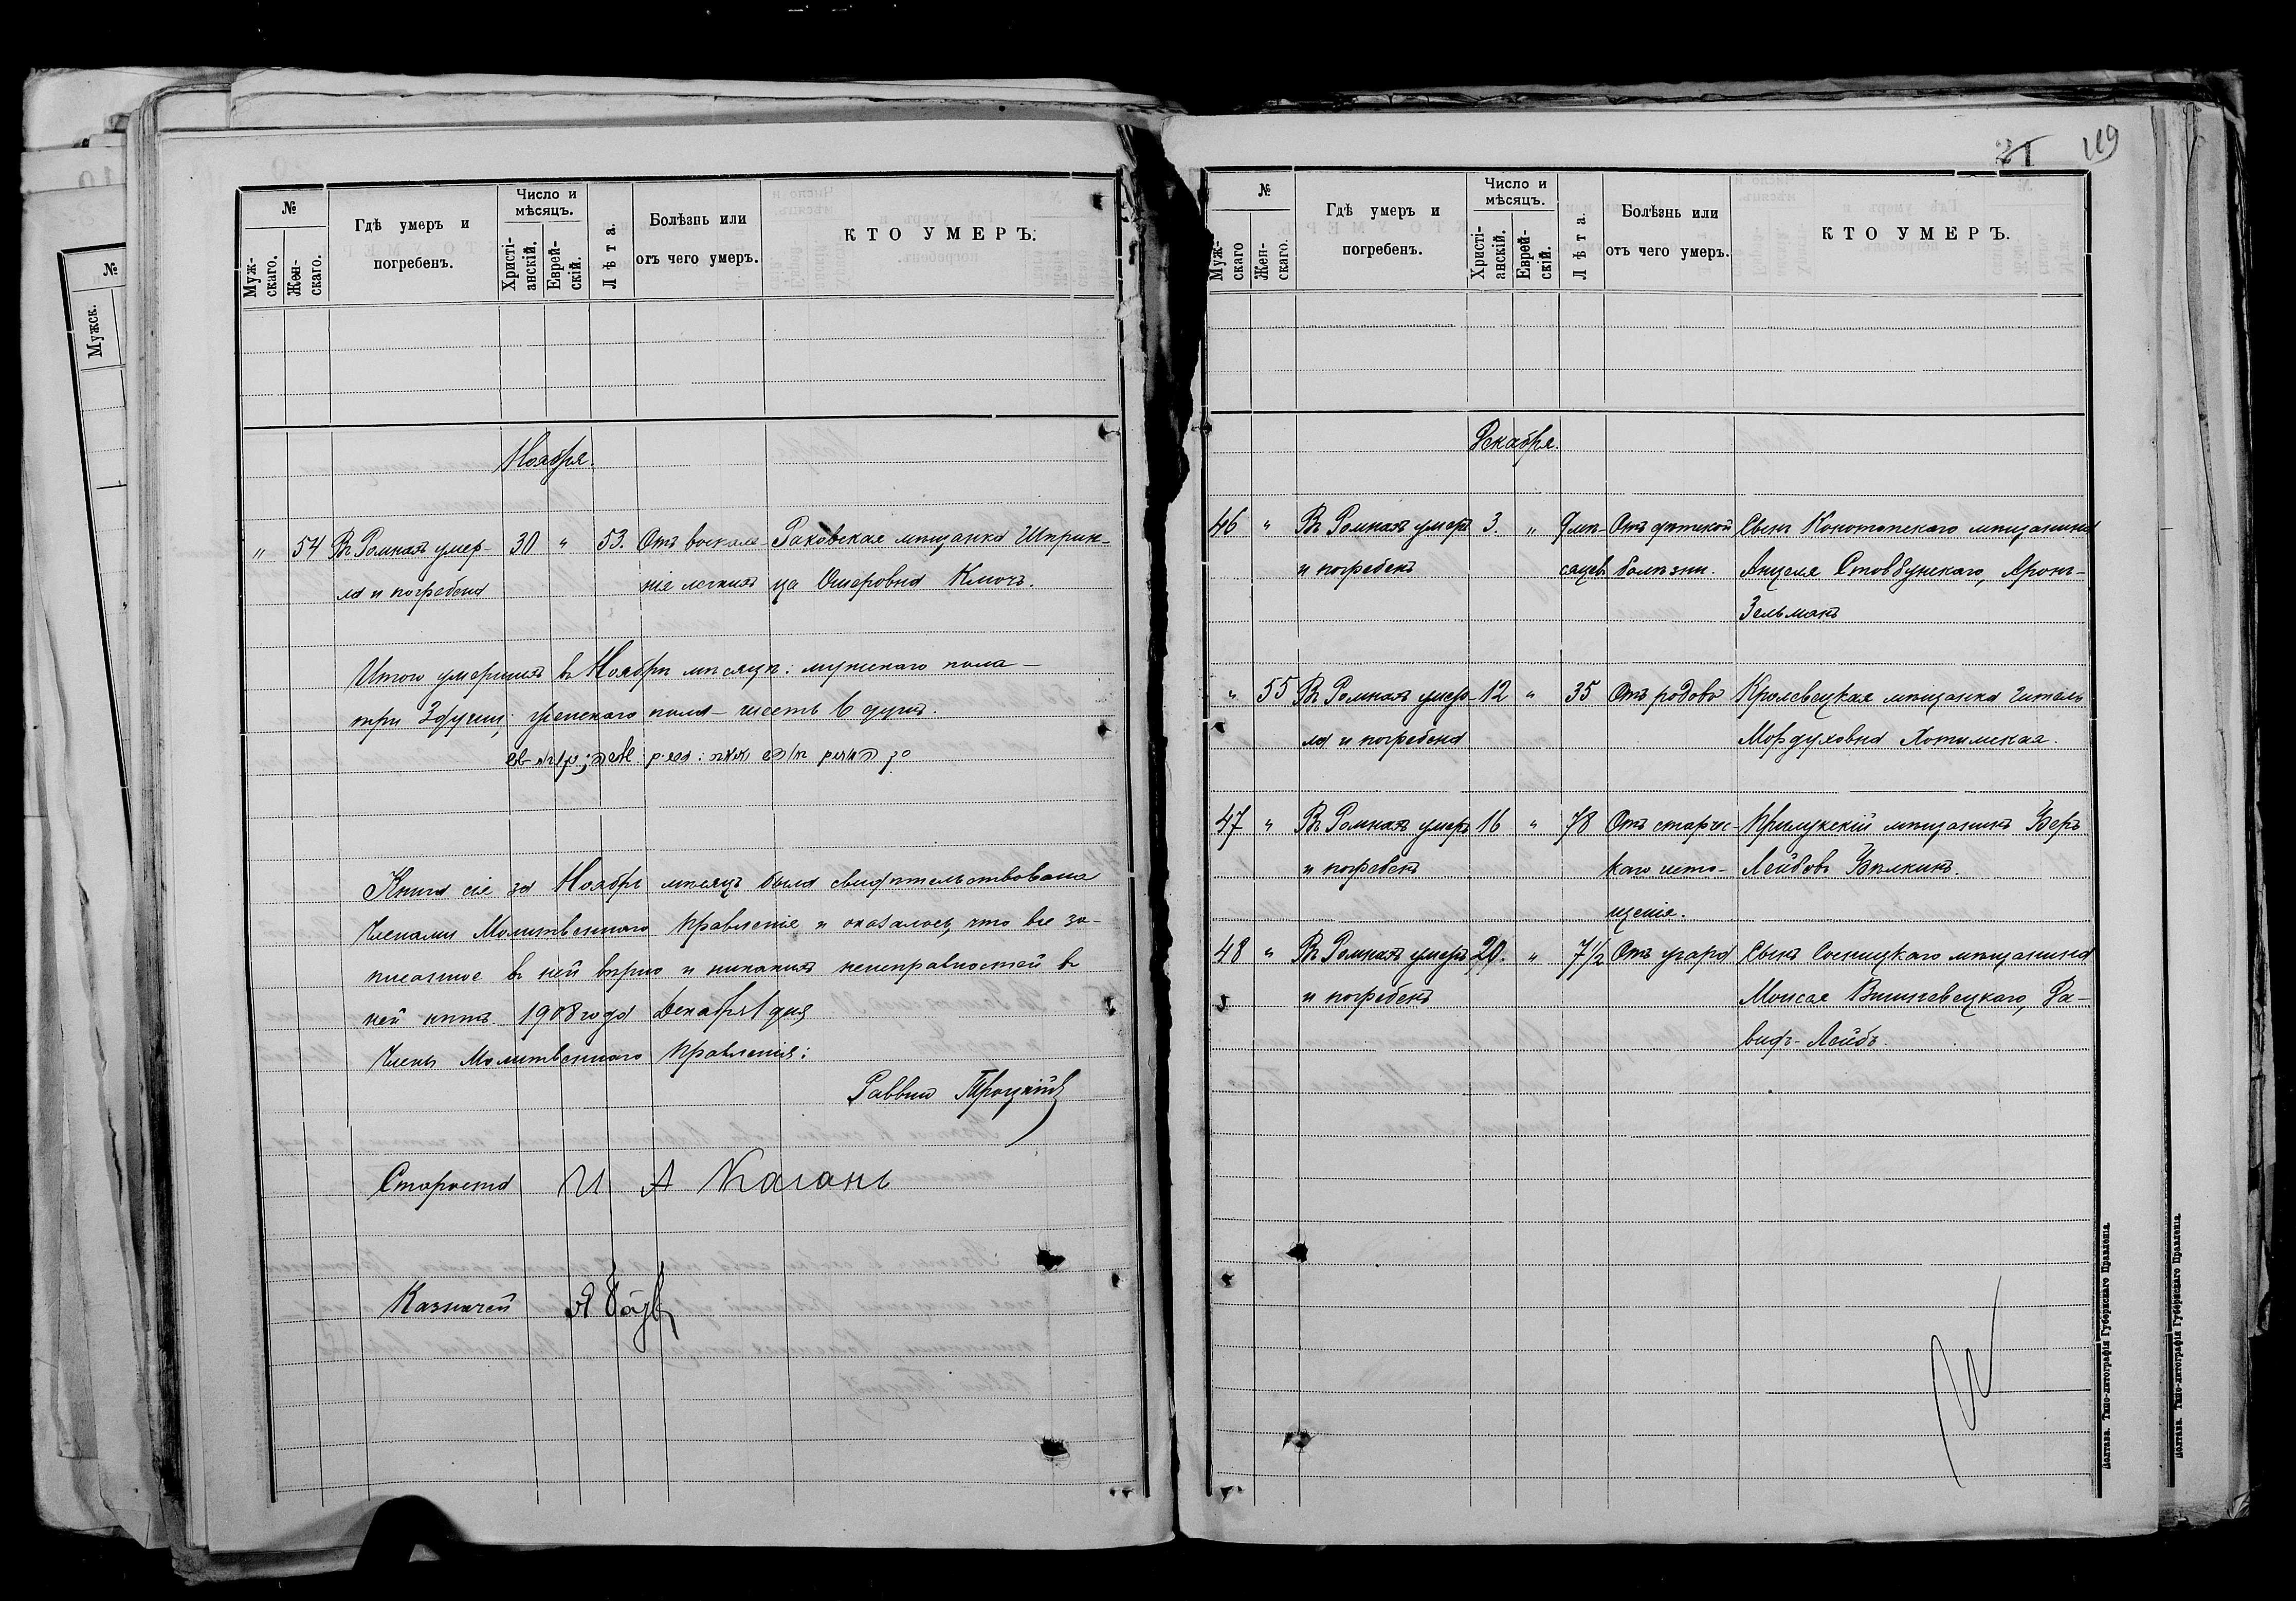 №
Гдѣ умеръ и
погребенъ.
Число и
мѣсяцъ.
Муж-
скаго.
Жен-
скаго.
Христі-
анскій.
Еврей-
скій.
Лѣта.
Болѣзнь или
отъ чего умеръ.
КТО УМЕРЪ:
Ноября.
" 54 Въ Ромнахъ умер- 30 " 53. Отъ воспале- Раковская мѣщанка Шприн-
ла и погребена ніе легкихъ ца Ошеровна Ключъ.
Итого умершихъ въ Ноябрѣ мѣсяцѣ: мужскаго пола —
три 3 души; женскаго пола — шесть 6 душъ.
Книга сія за Ноябрь мѣсяцъ была свидѣтельствована
Членами Молитвеннаго Правленія и оказалось, что все за-
писанное въ ней вѣрно и никакихъ неисправностей въ
ней нѣтъ. 1908 года Декабря 1 дня
Члены Молитвеннаго Правленія:
Раввин Троцкій
Староста И А Каганъ
Казначей
№
Мужск.
21 119
№
Гдѣ умеръ и
погребенъ.
Число и
мѣсяцъ.
Муж-
скаго
Жен-
скаго.
Христі-
анскій.
Еврей-
скій.
Лѣта.
Болѣзнь или
отъ чего умеръ.
КТО УМЕРЪ.
Декабря.
46 " Въ Ромнахъ умеръ 3. " 9 мѣ- Отъ дѣтской Сынъ Конотопскаго мѣщанина
и погребенъ сяцевъ болѣзни. Анцеля Столбунскаго, Аронъ-
Зельманъ
" 55 Въ Ромнахъ умер- 12 " 35 Отъ родовъ Кролевецкая мѣщанка Гитель
ла и погребена Мордуховна Хотимская.
47 " Въ Ромнахъ умеръ 16 " 78 Отъ старчес- Прилукскій мѣщанинъ Беръ
и погребенъ каго исто- Лейбовъ Бѣлкинъ.
щенія.
48 " Въ Ромнахъ умеръ 20. " 7½ Отъ угара Сынъ Сосницкаго мѣщанина
и погребенъ Моисея Вишневецкаго, Да-
видъ-Лейбъ
Полтава. Типо-литографія Губернскаго Правленія.
Полтава. Типо-литографія Губернскаго Правленія.